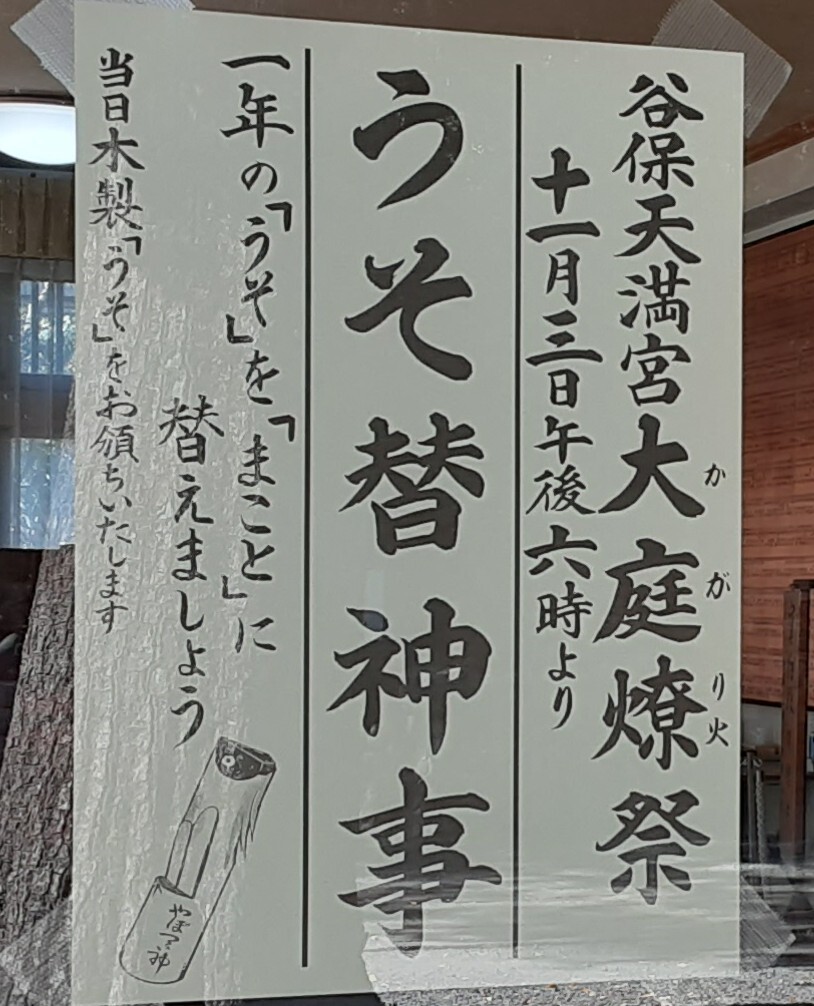 谷保天満宮大庭燎祭
かがり火
十一月三日午後六時より
うそ替神事
一年の「うそ」を「まこと」に
替えましょう
当日木製「うそ」をお頒ちいたします